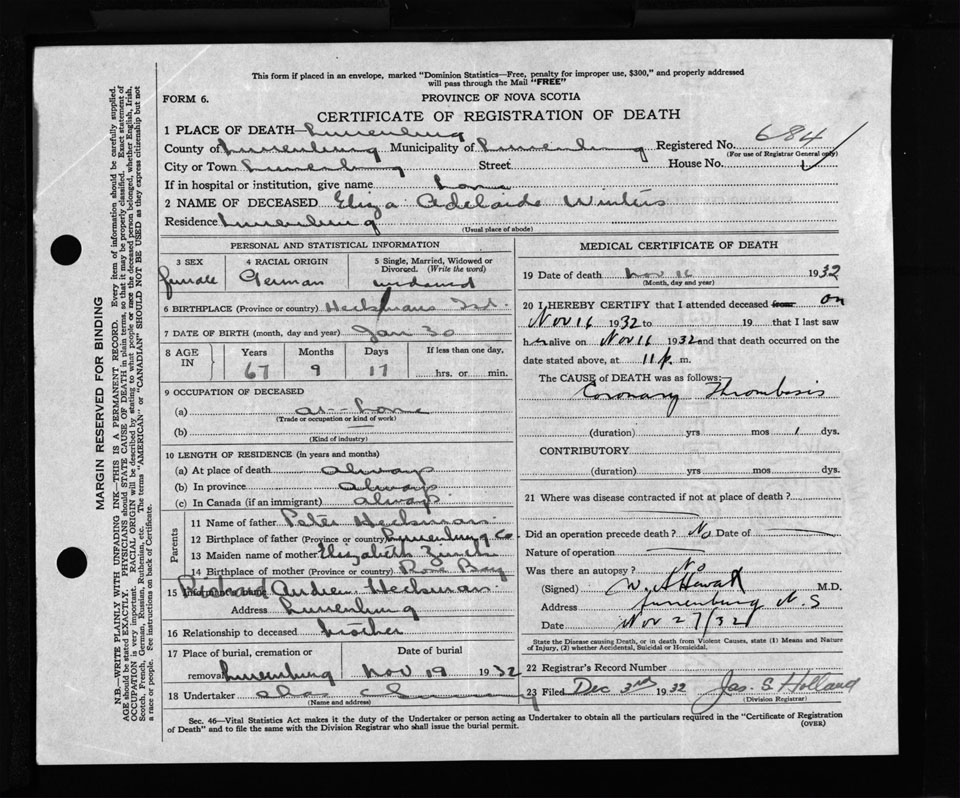 This form if placed in an envelope, marked "Dominion Statistics—Free, penalty for improper use, $300," and properly addressed
will pass through the Mail "FREE"
FORM 6.
PROVINCE OF NOVA SCOTIA
CERTIFICATE OF REGISTRATION OF DEATH
1 PLACE OF DEATH—Lunenburg
County of Lunenburg Municipality of Lunenburg Registered No. 684
(For use of Registrar General only)
City or Town Lunenburg Street House No.
If in hospital or institution, give name home
2 NAME OF DECEASED Eliza Adelaide Winters
Residence Lunenburg
(Usual place of abode)
PERSONAL AND STATISTICAL INFORMATION
3 SEX female
4 RACIAL ORIGIN German
5 Single, Married, Widowed or Divorced. (Write the word) widowed
6 BIRTHPLACE (Province or country) Heckmans Isd.
7 DATE OF BIRTH (month, day and year) Jan 30
8 AGE IN Years Months Days If less than one day,
67 9 17 hrs. or min.
9 OCCUPATION OF DECEASED
(a) at home
(Trade or occupation or kind of work)
(b)
(Kind of industry)
10 LENGTH OF RESIDENCE (in years and months)
(a) At place of death always
(b) In province always
(c) In Canada (if an immigrant) always
Parents
11 Name of father Peter Heckman
12 Birthplace of father (Province or country) Lunenburg Co
13 Maiden name of mother Elizabeth
14 Birthplace of mother (Province or country) Rose Bay
15 Andrew Heckman
Address Lunenburg
16 Relationship to deceased brother
17 Place of burial, cremation or removal Lunenburg
Date of burial Nov 19 1932
18 Undertaker
(Name and address)
MEDICAL CERTIFICATE OF DEATH
19 Date of death Nov 16 1932
(Month, day and year)
20 I HEREBY CERTIFY that I attended deceased from on
Nov 16 1932 to 19 that I last saw
her alive on Nov 16 1932 and that death occurred on the
date stated above, at 11 p. m.
The CAUSE of DEATH was as follows:
Coronary Thrombosis
(duration) yrs mos 1 dys.
CONTRIBUTORY
(duration) yrs mos dys.
21 Where was disease contracted if not at place of death?
Did an operation precede death? No Date of
Nature of operation
Was there an autopsy? No
(Signed) M.D.
Address Lunenburg N.S
Date Nov 27/32
State the Disease causing Death, or in death from Violent Causes, state (1) Means and Nature
of Injury, (2) whether Accidental, Suicidal or Homicidal.
22 Registrar's Record Number
23 Filed Dec 3rd 1932 Jas. S Holland
(Division Registrar)
Sec. 46—Vital Statistics Act makes it the duty of the Undertaker or person acting as Undertaker to obtain all the particulars required in the "Certificate of Registration
of Death" and to file the same with the Division Registrar who shall issue the burial permit.
(OVER)
MARGIN RESERVED FOR BINDING
N.B.—WRITE PLAINLY WITH UNFADING INK—THIS IS A PERMANENT RECORD. Every item of information should be carefully supplied.
AGE should be stated EXACTLY. PHYSICIANS should STATE CAUSE OF DEATH in plain terms, so that it may be properly classified. Exact statement of
OCCUPATION is very important. RACIAL ORIGIN will be described by stating to what people or race the deceased person belonged, whether English, Irish,
Scotch, French, German, Russian, Ruthenian, etc. The terms "AMERICAN" or "CANADIAN" SHOULD NOT BE USED as they express citizenship but not
a race or people. See instructions on back of Certificate.